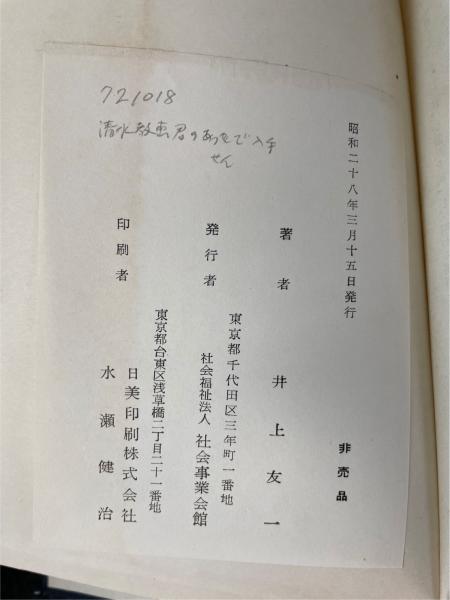 721018
清水教恵君のあっせんで入手
昭和二十八年三月十五日発行
非売品
著者 井上友一
東京都千代田区三年町一番地
発行者 社会福祉法人 社会事業会館
東京都台東区浅草橋二丁目二十一番地
印刷者 日美印刷株式会社
水瀬健治